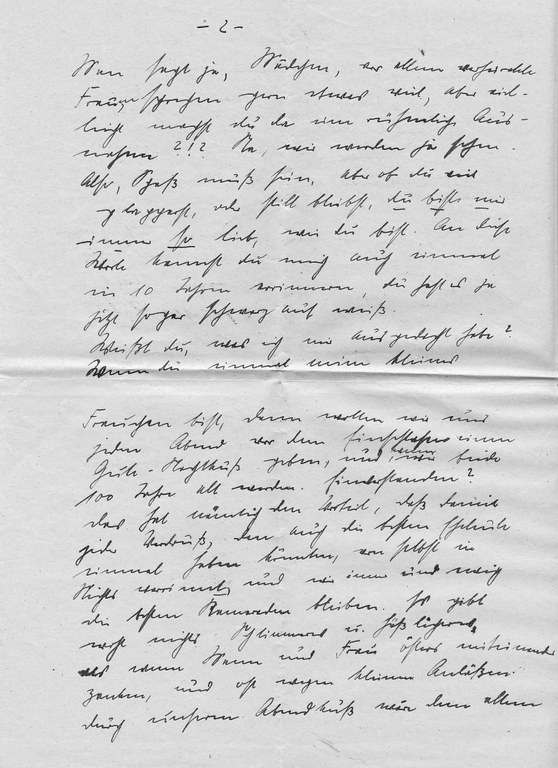 - 2 -
Man sagt ja, Mädchen, vor allem verheiratete
Frauen sprechen gern etwas viel, aber viel-
leicht machst du da eine rühmliche Aus-
nahme ?!? Na, wir werden ja sehen.
Also, Spaß muß sein, aber ob du viel
plapperst, oder still bleibst, du bist mir
immer so lieb, wie du bist. An diese
Worte kannst du mich auch einmal
in 10 Jahren erinnern, du hast es ja
jetzt sogar schwarz auf weiß.
Weißt du, was ich mir ausgedacht habe?
Wenn du einmal mein kleines
Frauchen bist, dann wollen wir uns
jeden Abend vor dem Einschlafen einen
Gute-Nachtkuß geben, und wir beide
100 Jahre alt werden. Einverstanden?
das hat nämlich den Vorteil, daß damit
jeder Verdruß, den auch die besten Eheleute
einmal haben könnten, von selbst in
Nichts und wir immer und ewig
die besten Kameraden bleiben. Es gibt
wohl nichts Schlimmeres u. häßlicheres,
als wenn Mann und Frau öfters miteinander
zanken, und oft wegen kleinen Anläßen.
durch unseren Abendkuß wäre dem allem